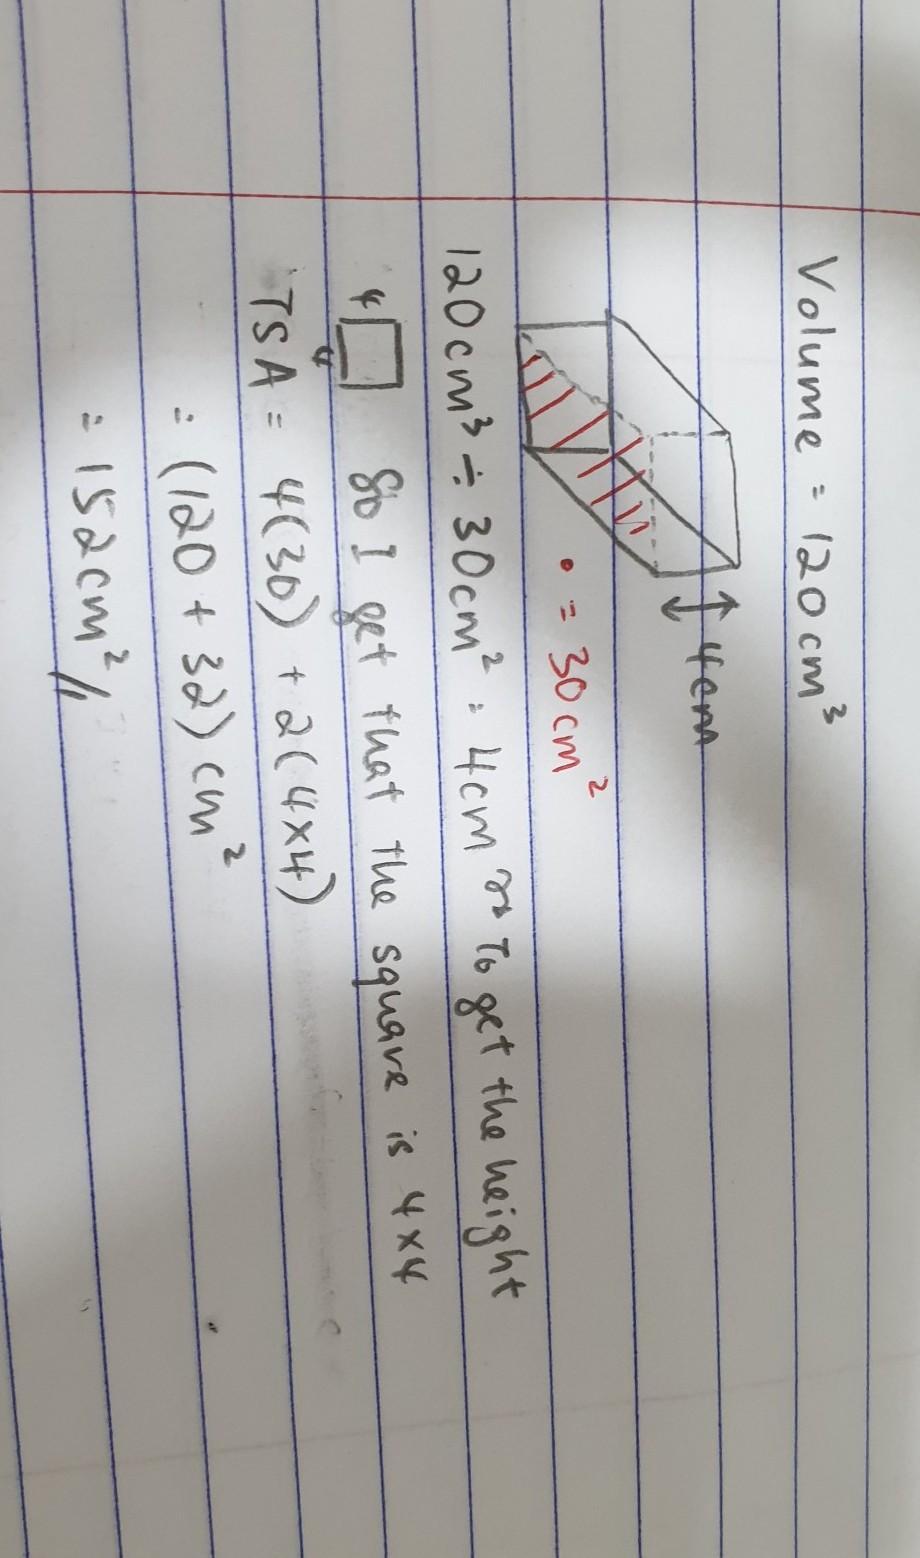 Volume = 120cm³
4cm
• = 30cm²
120cm³ ÷ 30cm² = 4cm → To get the height
4
4
So I get that the square is 4×4
TSA = 4(30) + 2(4×4)
= (120 + 32) cm²
= 152cm²//